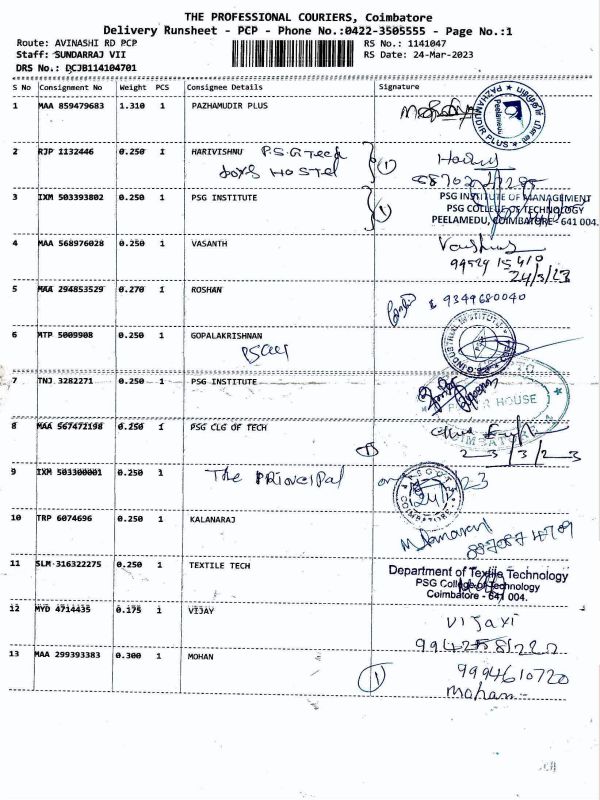 THE PROFESSIONAL COURIERS, Coimbatore
Delivery Runsheet - PCP - Phone No.:0422-3505555 - Page No.:1
Route: AVINASHI RD PCP
Staff: SUNDARRAJ VII
DRS No.: DCJB114104701
RS No.: 1141047
RS Date: 24-Mar-2023
S No Consignment No Weight PCS Consignee Details Signature
1 MAA 859479683 1.310 1 PAZHAMUDIR PLUS
PAZHAMUDIR PLUS
Peelamedu
2 RJP 1132446 0.250 1 HARIVISHNU P.S.G Tech
Boys HOSTEL
1
3 IXM 503393802 0.250 1 PSG INSTITUTE
1
PSG INSTITUTE OF MANAGEMENT
PSG COLLEGE OF TECHNOLOGY
PEELAMEDU, COIMBATORE - 641 004.
4 MAA 568976028 0.250 1 VASANTH
99529 15410
24/3/23
5 MAA 294853529 0.270 1 ROSHAN
9349680040
6 MTP 5009908 0.250 1 GOPALAKRISHNAN
INDUSTRIAL INSTITUTE
7 TNJ 3282271 0.250 1 PSG INSTITUTE
HOUSE
COIMBATORE
8 MAA 567472198 0.250 1 PSG CLG OF TECH
1
23/3/23
9 IXM 503300001 0.250 1 The Principal
COIMBATORE
10 TRP 6074696 0.250 1 KALANARAJ
11 SLM 316322275 0.250 1 TEXTILE TECH
Department of Textile Technology
PSG College of Technology
Coimbatore - 641 004.
12 MYD 4714435 0.175 1 VIJAY
13 MAA 299393383 0.300 1 MOHAN
1
9994610720
Mohan